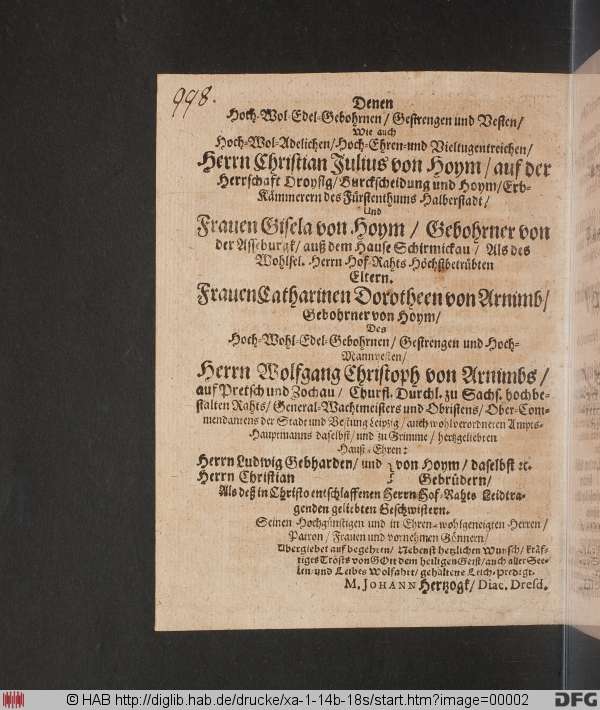 998.
Denen
Hoch-Wol-Edel-Gebohrnen / Gestrengen und Vesten /
Wie auch
Hoch-Wol-Adelichen / Hoch-Ehren-und Vieltugentreichen /
Herrn Christian Julius von Hoym / auf der
Herrschaft Droysig / Burckscheidung und Hoym / Erb-
Kämmerern des Fürstenthums Halberstadt /
Und
Frauen Gisela von Hoym / Gebohrner von
der Asseburgk / auß dem Hause Schirmickau / Als des
Wohlsel. Herrn Hof-Rahts Höchstbetrübten
Eltern.
Frauen Catharinen Dorotheen von Arnimb /
Gebohrner von Hoym /
Des
Hoch-Wohl-Edel-Gebohrnen / Gestrengen und Hoch-
Mannvesten /
Herrn Wolfgang Christoph von Arnimbs /
auf Pretsch und Zochau / Churfl. Durchl. zu Sachs. hochbe-
stalten Rahts / General-Wachtmeisters und Obristens / Ober-Com-
mendantens der Stadt und Vestung Leipzig / auch wohlverordneten Ampts-
Hauptmanns daselbst / und zu Grimme / hertzgeliebten
Hauß-Ehren:
Herrn Ludwig Gebharden / und } von Hoym / daselbst ꝛc.
Herrn Christian } Gebrüdern /
Als deß in Christo entschlaffenen Herrn Hof-Rahts Leidtra-
genden geliebten Geschwistern.
Seinen Hochgünstigen und in Ehren-wohlgeneigten Herren /
Patron / Frauen und vornehmen Gönnern /
Ubergiebet auf begehren / Nebenst hertzlichen Wuntsch / kräf-
tiges Trosts von GOtt dem heiligen Geist / auch aller See-
len-und Leibes Wolfahrt / gehaltene Leich-Predigt.
M. JOHANN Hertzogk / Diac. Dresd.
© HAB http://diglib.hab.de/drucke/xa-1-14b-18s/start.htm?image=00002
DFG